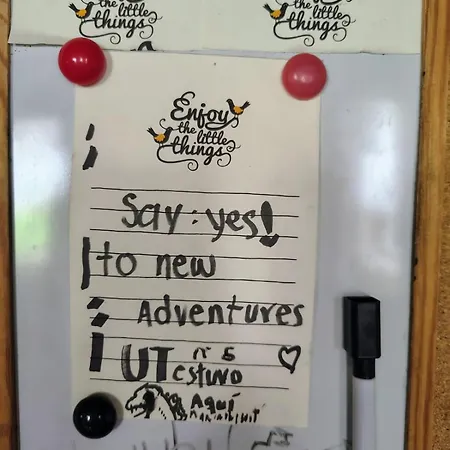 the little
things
the little
things
Enjoy
the little
things
Say: yes!
to new
Adventures
UT n° 5
estuvo
Aquí